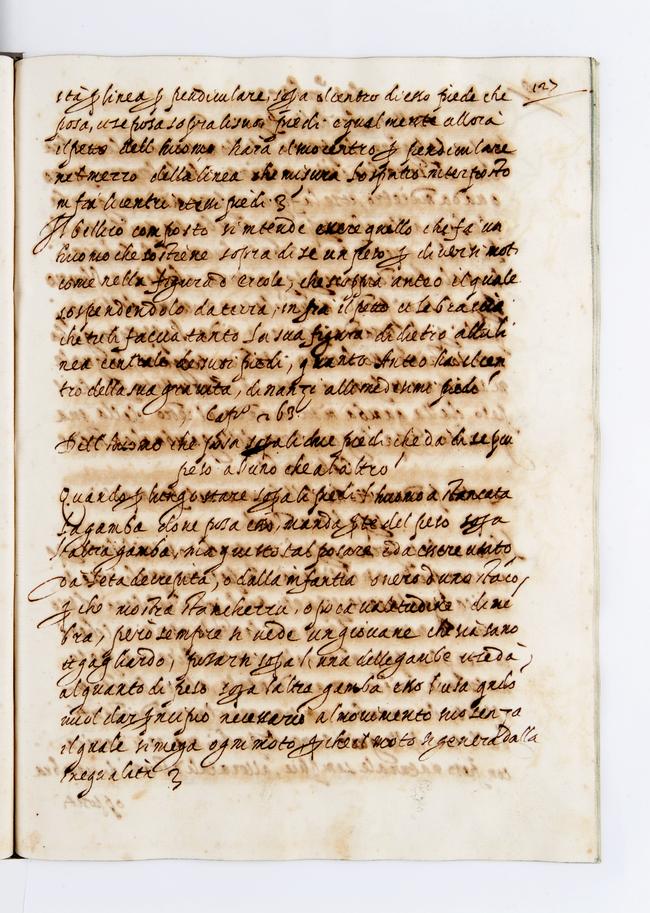 127
sta p linea p pendiculare, sopa il centro di esso piede che
posa, et se posa sopra li suoi piedi equalmente allora
il peso dell huomo harà il suo centro p pendiculare
nel mezzo della linea che misura lo spatio interposto
in fra li centri di essi piedi
Il bellico composto s'intende essere quello che fa un
huomo che sostiene sopra di se un peso p diversi moti
come nella figura d'ercole, che scopia anteo il quale
sospendendolo da terra, in fra il petto et le braccia
che tu li faccia tanto la sua figura di dietro alla li
nea centrale de suoi piedi, quanto Anteo ha il cen
tro della sua gravità, dinanzi alli medesimi piedi
Cap.º 263
Dell huomo che posa sopa li due piedi che da di se piu
peso a l'uno che a l'altro
Quando p lungo stare sopa li piedi l'huomo à stancata
la gamba dove posa esso, manda pte del peso sopa
l'altra gamba, ma questo tal posare è da essere usato
da l'eta decrepita, o dalla infantia overo d'uno staco,
p che mostra stanchezza, o poca valetudine di me
bra, però sempre si vede un giovane che sia sano
et gagliardo, posarsi sopa l'una delle gambe et se dà
alquanto di peso sopa l'altra gamba esso l'usa qndo
vuol dar pncipio necessario al movimento suo senza
il quale si nega ogni moto p che il moto si genera dalla
inequalità